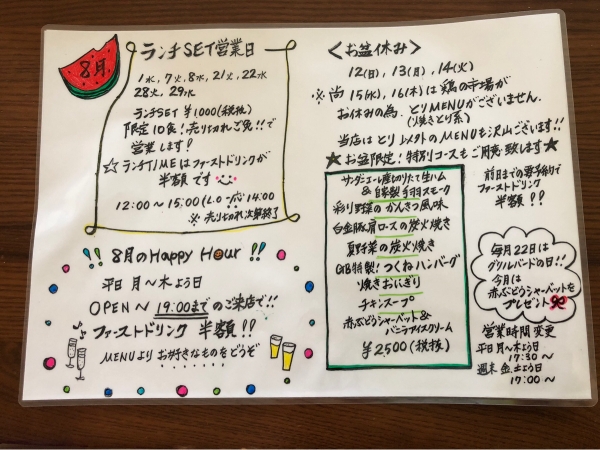 8月
ランチSET営業日
1水,7火,8水,21火,22水
28火,29水
ランチSET ¥1000(税抜)
限定10食!売り切れご免!!で
営業します!
☆ランチTIMEはファーストドリンクが
半額です
12:00〜15:00(L.O 14:00
※売り切れ次第終了
!!8月のHappy Hour!!
平日 月〜木よう日
OPEN〜19:00までのご来店で!!
ファーストドリンク 半額!!
MENUより お好きなものをどうぞ
<お盆休み>
12(日),13(月),14(火)
※尚 15(水),16(木)は鶏の市場が
お休みの為、とりMENUがございません。
(焼きとり系)
当店はとり以外のMENUも沢山ございます!!
★お盆限定!特別コースもご用意致します★
サンダニエーレ産切りたて生ハム
&自家製手羽スモーク
彩り野菜のかんきつ風味
白金豚肩ロースの炭火焼き
夏野菜の炭火焼き
GB特製!つくねハンバーグ
焼きおにぎり
チキンスープ
赤ぶどうシャーベット&
バニラアイスクリーム
¥2500(税抜)
前日までの要予約で
ファーストドリンク
半額!!
毎月22日は
グリルバードの日!!
今月は
赤ぶどうシャーベットを
プレゼント
営業時間変更
平日 月〜木よう日
17:30〜
週末 金,土よう日
17:00〜